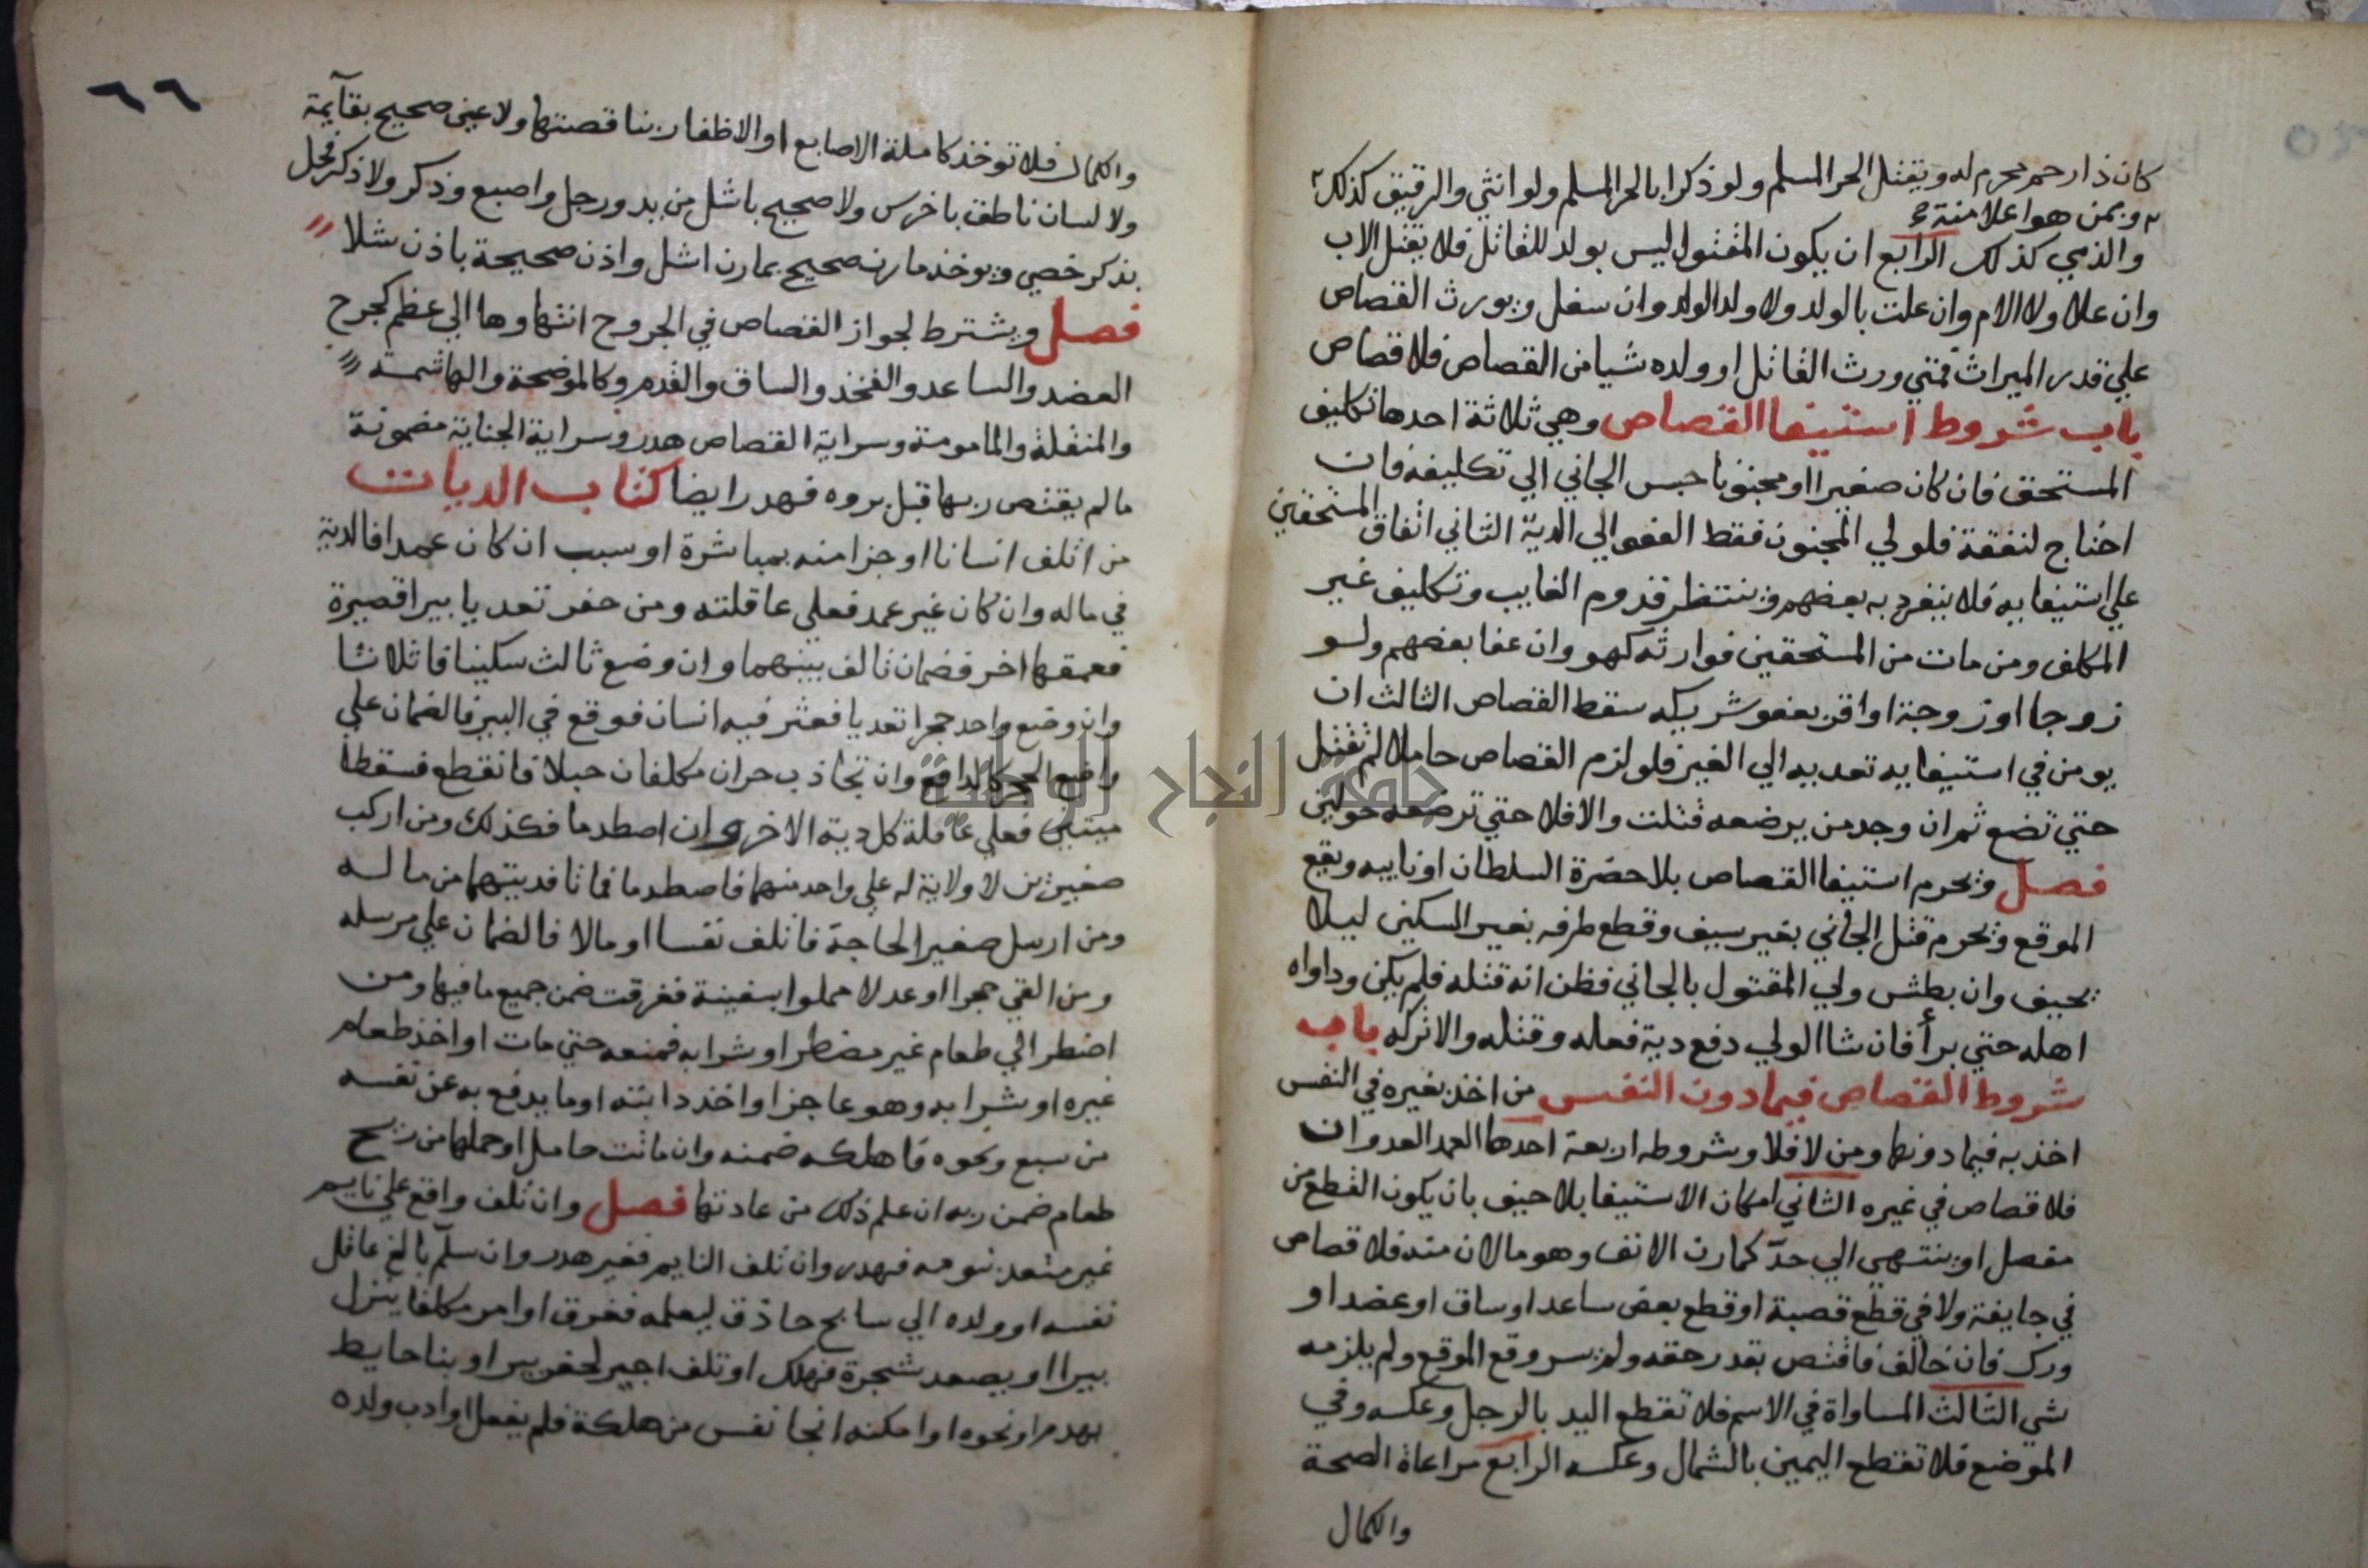 كان ذا رحم محرم له ويقتل الحر المسلم ولو ذكرا بالحر المسلم ولو انثي والرقيق كذلك
وبمن هو اعلا منه
والذمي كذلك الرابع ان يكون المقتول ليس بولد للقاتل فلا يقتل الاب
وان علا ولا الام وان علت بالولد ولا ولد الولد وان سفل ويورث القصاص
علي قدر الميراث فمتي ورث القاتل او ولده شيا من القصاص فلا قصاص
باب شروط استيفا القصاص وهي ثلاثة احدها تكليف
المستحق فان كان صغيرا او مجنونا حبس الجاني الي تكليفه فان
احتاج لنفقة فلولي المجنون فقط العفو الي الدية الثاني اتفاق المستحقين
علي استيفايه فلا ينفرد به بعضهم وينتظر قدوم الغايب وتكليف غير
المكلف ومن مات من المستحقين فوارثه كهو وان عفا بعضهم ولو
زوجا او زوجة او اقر بعفو شريكه سقط القصاص الثالث ان
يومن في استيفايه تعديه الي الغير فلو لزم القصاص حاملا لم تقتل
حتي تضع ثم ان وجد من يرضعه قتلت والا فلا حتي ترضعه حولين
فصل ويحرم استيفا القصاص بلا حضرة السلطان او نايبه ويقع
الموقع ويحرم قتل الجاني بغير سيف وقطع طرفه بغير السكين ليلا
يحيف وان بطش ولي المقتول بالجاني فظن انه قتله فلم يكن وداواه
اهله حتي برأ فان شا الولي دفع دية فعله وقتله والا تركه باب
شروط القصاص فيما دون النفس من اخذ بغيره في النفس
اخذ به فيما دونها ومن لا فلا وشروطه اربعة احدها العمد العدوان
فلا قصاص في غيره الثاني امكان الاستيفا بلا حيف بان يكون القطع من
مفصل او ينتهي الي حد كمارن الانف وهو ما لان منه فلا قصاص
في جايفة ولا في قطع قصبة او قطع بعض ساعد او ساق او عضد او
ورك فان خالف فاقتص بقدر حقه ولم يسر وقع الموقع ولم يلزمه
شي الثالث المساواة في الاسم فلا تقطع اليد بالرجل وعكسه وفي
الموضع فلا تقطع اليمين بالشمال وعكسه الرابع مراعاة الصحة
والكمال
٦٦
والكمال فلا توخذ كاملة الاصابع او الاظفار بناقصتها ولا عين صحيح بقآيمة
ولا لسان ناطق باخرس ولا صحيح باشل من يد ورجل واصبع وذكر ولا ذكر فحل
بذكر خصي ويوخذ مارن صحيح بمارن اشل واذن صحيحة باذن شلا
فصل ويشترط لجواز القصاص في الجروح انتهاوها الي عظم كجرح
العضد والساعد والفخذ والساق والقدم وكالموضحة والهاشمة
والمنقلة والمامومة وسراية القصاص هدر وسراية الجناية مضمونة
ما لم يقتص ربها قبل بروه فهدر ايضا كتاب الديات
من اتلف انسانا او جزا منه بمباشرة او سبب ان كان عمدا فالدية
في ماله وان كان غير عمد فعلي عاقلته ومن حفر تعديا بيرا قصيرة
فعمقها اخر فضمان تالف بينهما وان وضع ثالث سكينا فاثلاثا
وان وضع واحد حجرا تعديا فعثر فيه انسان فوقع في البير فالضمان علي
واضع الحجر كالدافع وان تجاذب حران مكلفان حبلا فانقطع فسقطا
ميتين فعلي عاقلة كل دية الاخر وان اصطدما فكذلك ومن اركب
صغيرين لا ولاية له علي واحد منهما فاصطدما فماتا فديتهما من ماله
ومن ارسل صغيرا لحاجة فاتلف نفسا او مالا فالضمان علي مرسله
ومن القي حجرا او عدلا مملوا بسفينة فغرقت ضمن جميع ما فيها ومن
اضطر الي طعام غير مضطر او شرابه فمنعه حتي مات او اخذ طعام
غيره او شرابه وهو عاجز او اخذ دابته او ما يدفع به عن نفسه
من سبع ونحوه فاهلكه ضمنه وان ماتت حامل او حملها من ريح
طعام ضمن ربه ان علم ذلك من عادتها فصل وان تلف واقع علي نايم
غير متعد بنومه فهدر وان تلف النايم فغير هدر وان سلم بالغ عاقل
نفسه او ولده الي سابح حاذق ليعلمه فغرق او امر مكلفا ينزل
بيرا او يصعد شجرة فهلك او تلف اجير لحفر بير او بنا حايط
بهدم او نحوه او امكنه انجا نفس من هلكة فلم يفعل او ادب ولده
جامعة النجاح الوطنية